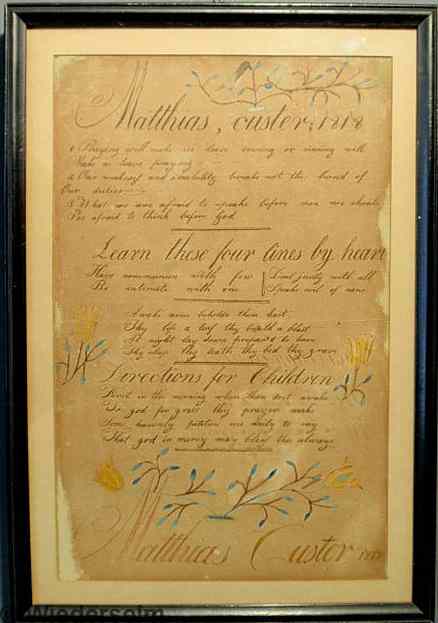 Matthias, custer, 1818
1 Praying will make us leave sinning or sinning will
Make us leave praying
2 Our weakness and inability breake not the bond of
Our duties
3 What we are afraid to speake before men we should
Be afraid to think before God
Learn these four lines by heart
Have communion with few
Be intimate with one
Deal justly with all
Speake evil of none
Awake arise behold thou hast
Thy life a leaf thy breath a blast
At night lay down prepar'd to have
Thy sleep thy death thy bed thy grave
Directions for Children
First in the morning when thou dost awake
To god for grace thy prayer make
Some heavenly petition use daily to say
That god in mercy may bless thee always
Matthias Custer 1818